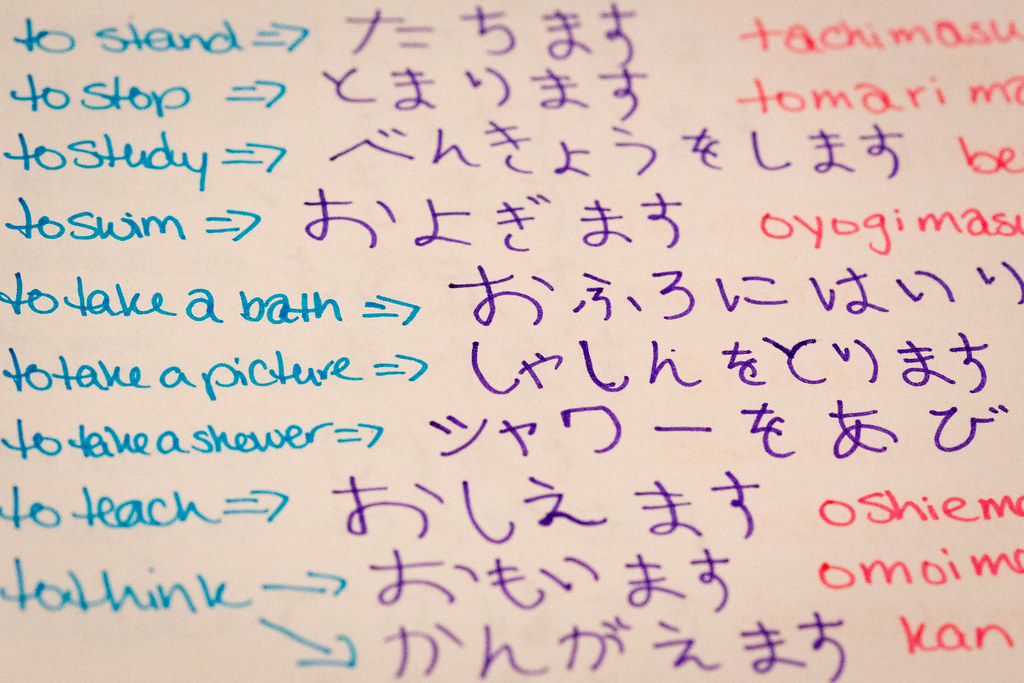 to stand ⇒ たちます tachimasu
to stop ⇒ とまります tomarima
to study ⇒ べんきょうをします be
to swim ⇒ およぎます oyogimasu
to take a bath ⇒ おふろにはいり
to take a picture ⇒ しゃしんをとります
to take a shower ⇒ シャワーをあび
to teach ⇒ おしえます oshiema
to think → おもいます omoima
→ かんがえます kan